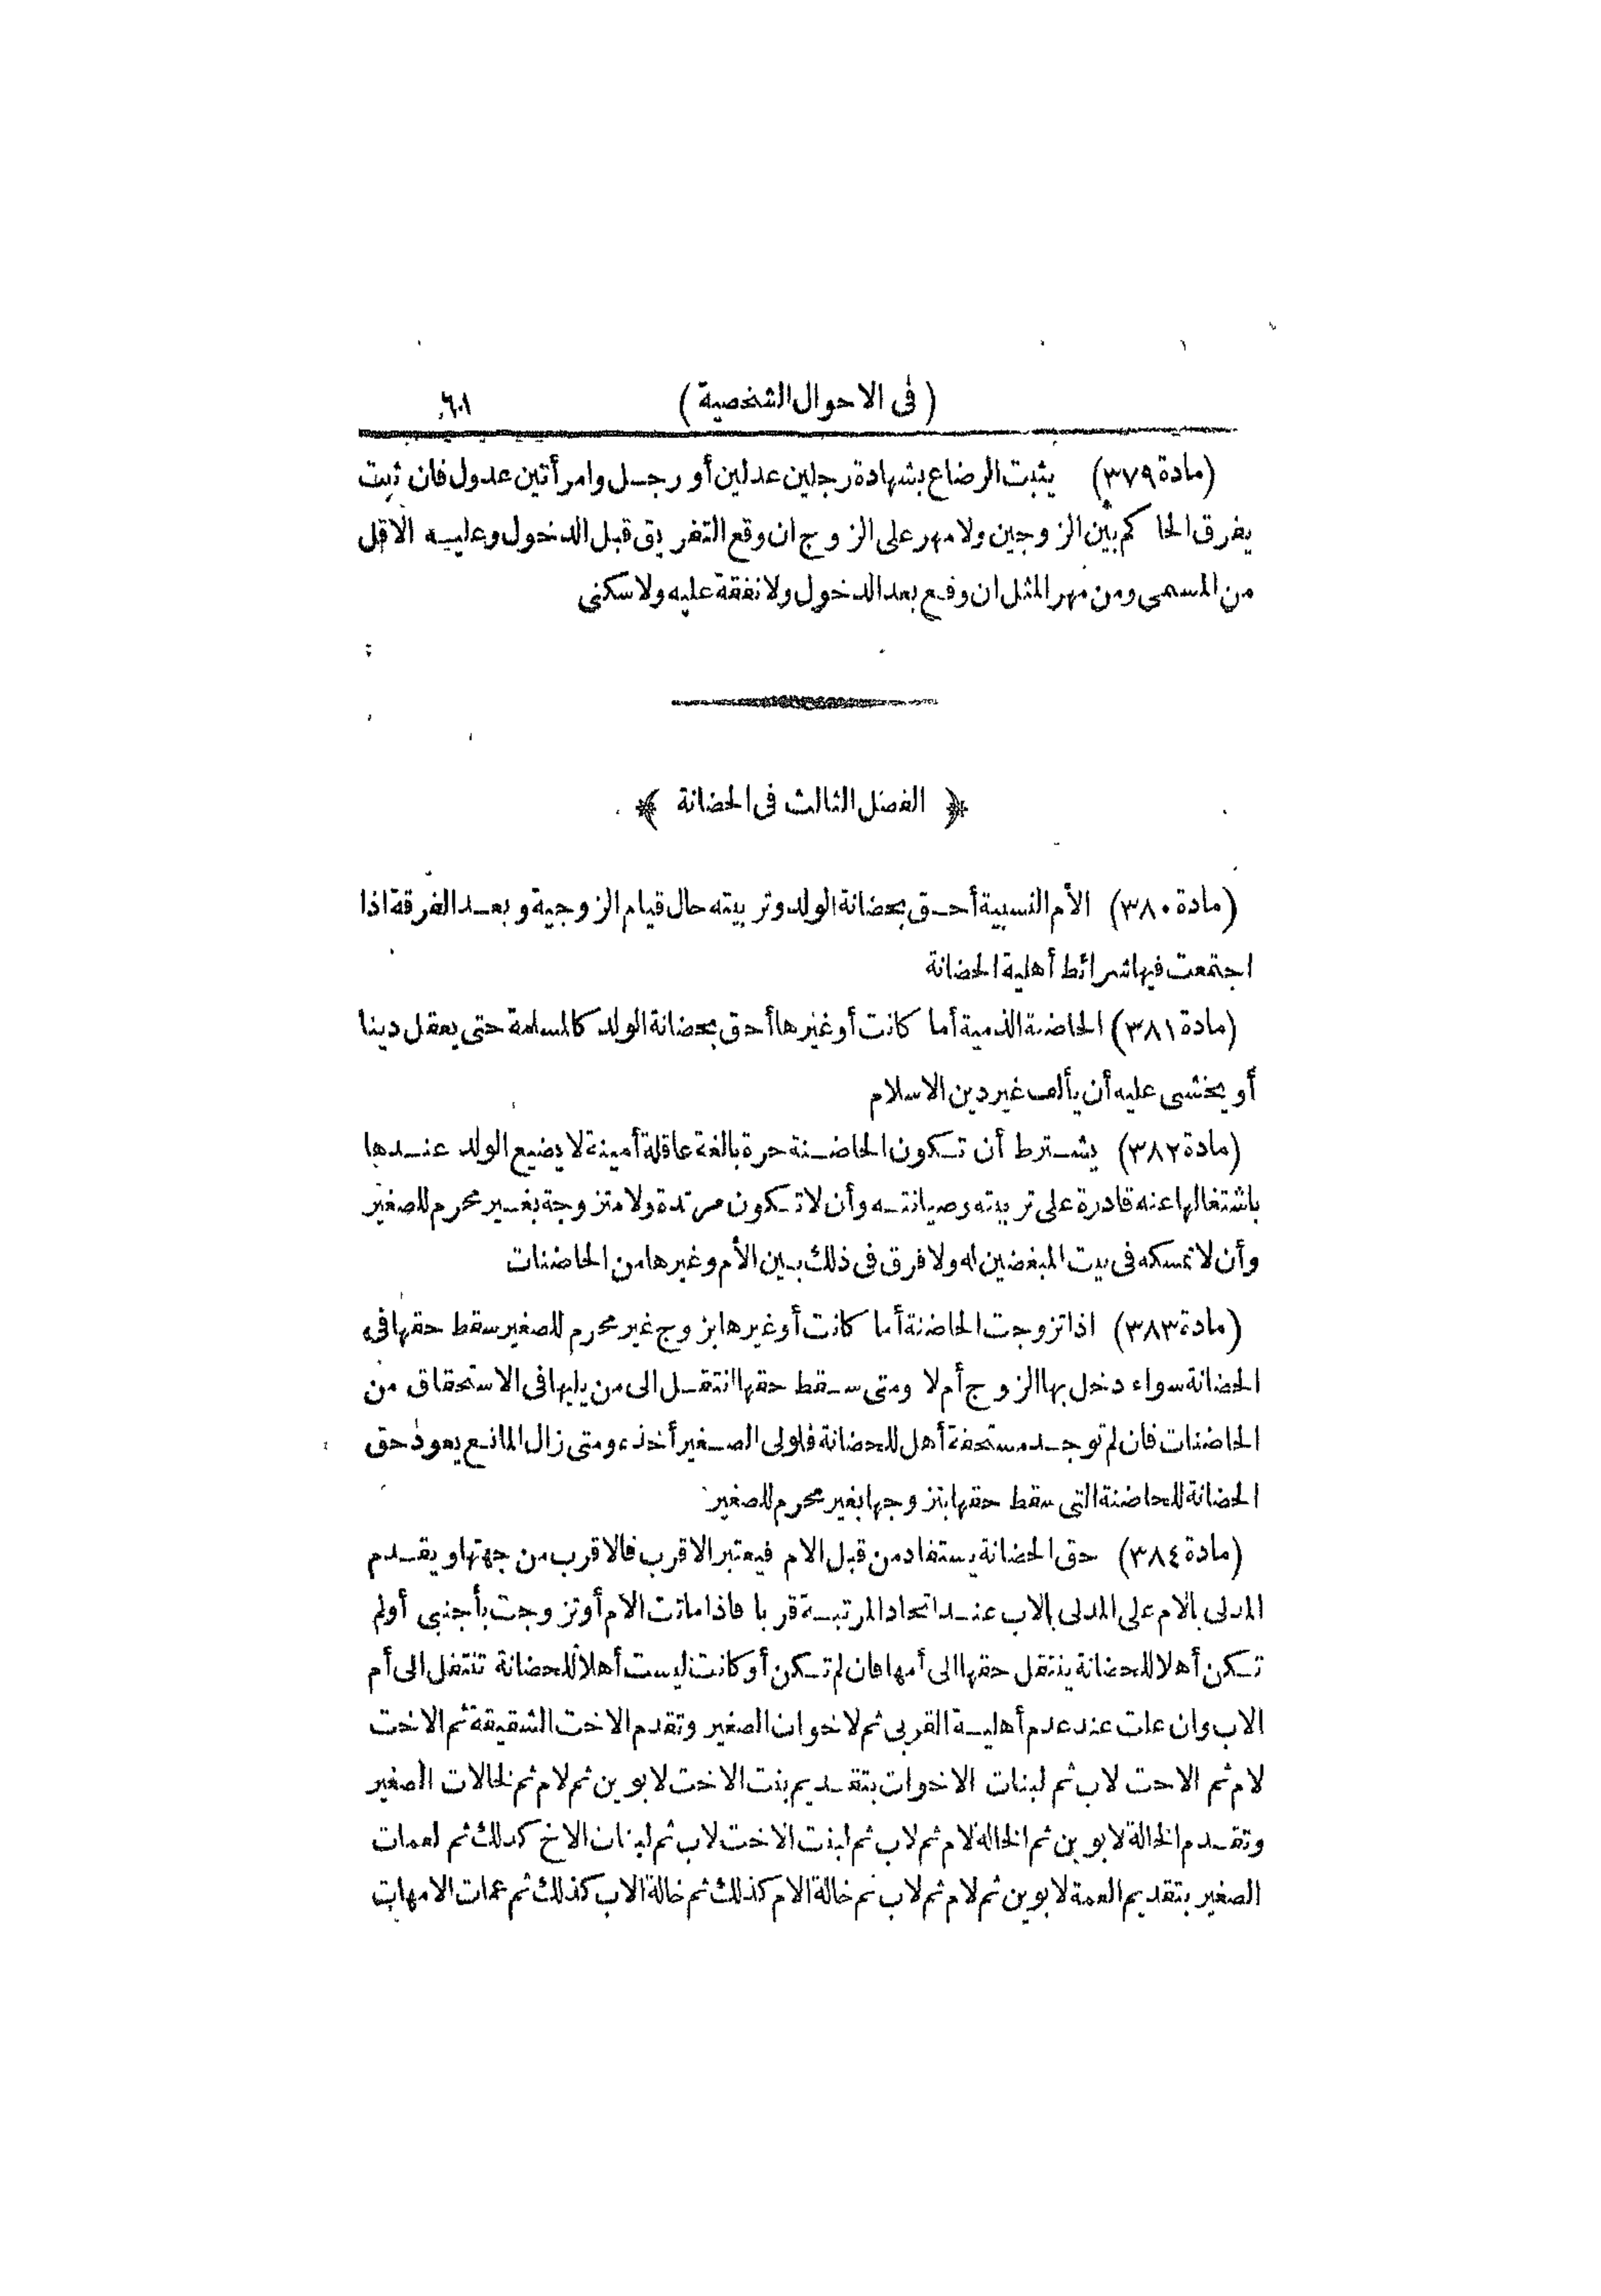 (فى الاحوال الشخصية) ٦٠١
(مادة ٣٧٩) يثبت الرضاع بشهادة رجلين عدلين أو رجل وامرأتين عدول فان ثبت
يفرق الحاكم بين الزوجين ولا مهر على الزوج ان وقع التفريق قبل الدخول وعليه الاقل
من المسمى ومن مهر المثل ان وقع بعد الدخول ولا نفقة عليه ولا سكنى
﴿ الفصل الثالث فى الحضانة ﴾
(مادة ٣٨٠) الأم النسبية أحق بحضانة الولد وتربيته حال قيام الزوجية وبعد الفرقة اذا
اجتمعت فيها شرائط أهلية الحضانة
(مادة ٣٨١) الحاضنة الذمية أما كانت أو غيرها أحق بحضانة الولد كالمسلمة حتى يعقل دينا
أو يخشى عليه أن يألف غير دين الاسلام
(مادة ٣٨٢) يشترط أن تكون الحاضنة حرة بالغة عاقلة أمينة لا يضيع الولد عندها
باشتغالها عنه قادرة على تربيته وصيانته وأن لا تكون مرتدة ولا متزوجة بغير محرم للصغير
وأن لا تمسكه فى بيت المبغضين له ولا فرق فى ذلك بين الأم وغيرها من الحاضنات
(مادة ٣٨٣) اذا تزوجت الحاضنة أما كانت أو غيرها بزوج غير محرم للصغير سقط حقها فى
الحضانة سواء دخل بها الزوج أم لا ومتى سقط حقها انتقل الى من يليها فى الاستحقاق من
الحاضنات فان لم توجد مستحقة أهل للحضانة فلولى الصغير أخذه ومتى زال المانع يعود حق
الحضانة للحاضنة التى سقط حقها بتزوجها بغير محرم للصغير
(مادة ٣٨٤) حق الحضانة يستفاد من قبل الام فيعتبر الاقرب فالاقرب من جهتها ويقدم
المدلى بالام على المدلى بالاب عند اتحاد المرتبة قربا فاذا ماتت الام أو تزوجت بأجنبى أو لم
تكن أهلا للحضانة ينتقل حقها الى أمها فان لم تكن أو كانت ليست أهلا للحضانة تنتقل الى أم
الاب وان علت عند عدم أهلية القربى ثم لاخوات الصغير وتقدم الاخت الشقيقة ثم الاخت
لام ثم الاخت لاب ثم لبنات الاخوات بتقديم بنت الاخت لابوين ثم لام ثم لخالات الصغير
وتقدم الخالة لابوين ثم الخالة لام ثم لاب ثم لبنت الاخت لاب ثم لبنات الاخ كذلك ثم لعمات
الصغير بتقديم العمة لابوين ثم لام ثم لاب ثم خالة الام كذلك ثم خالة الاب كذلك ثم عمات الامهات